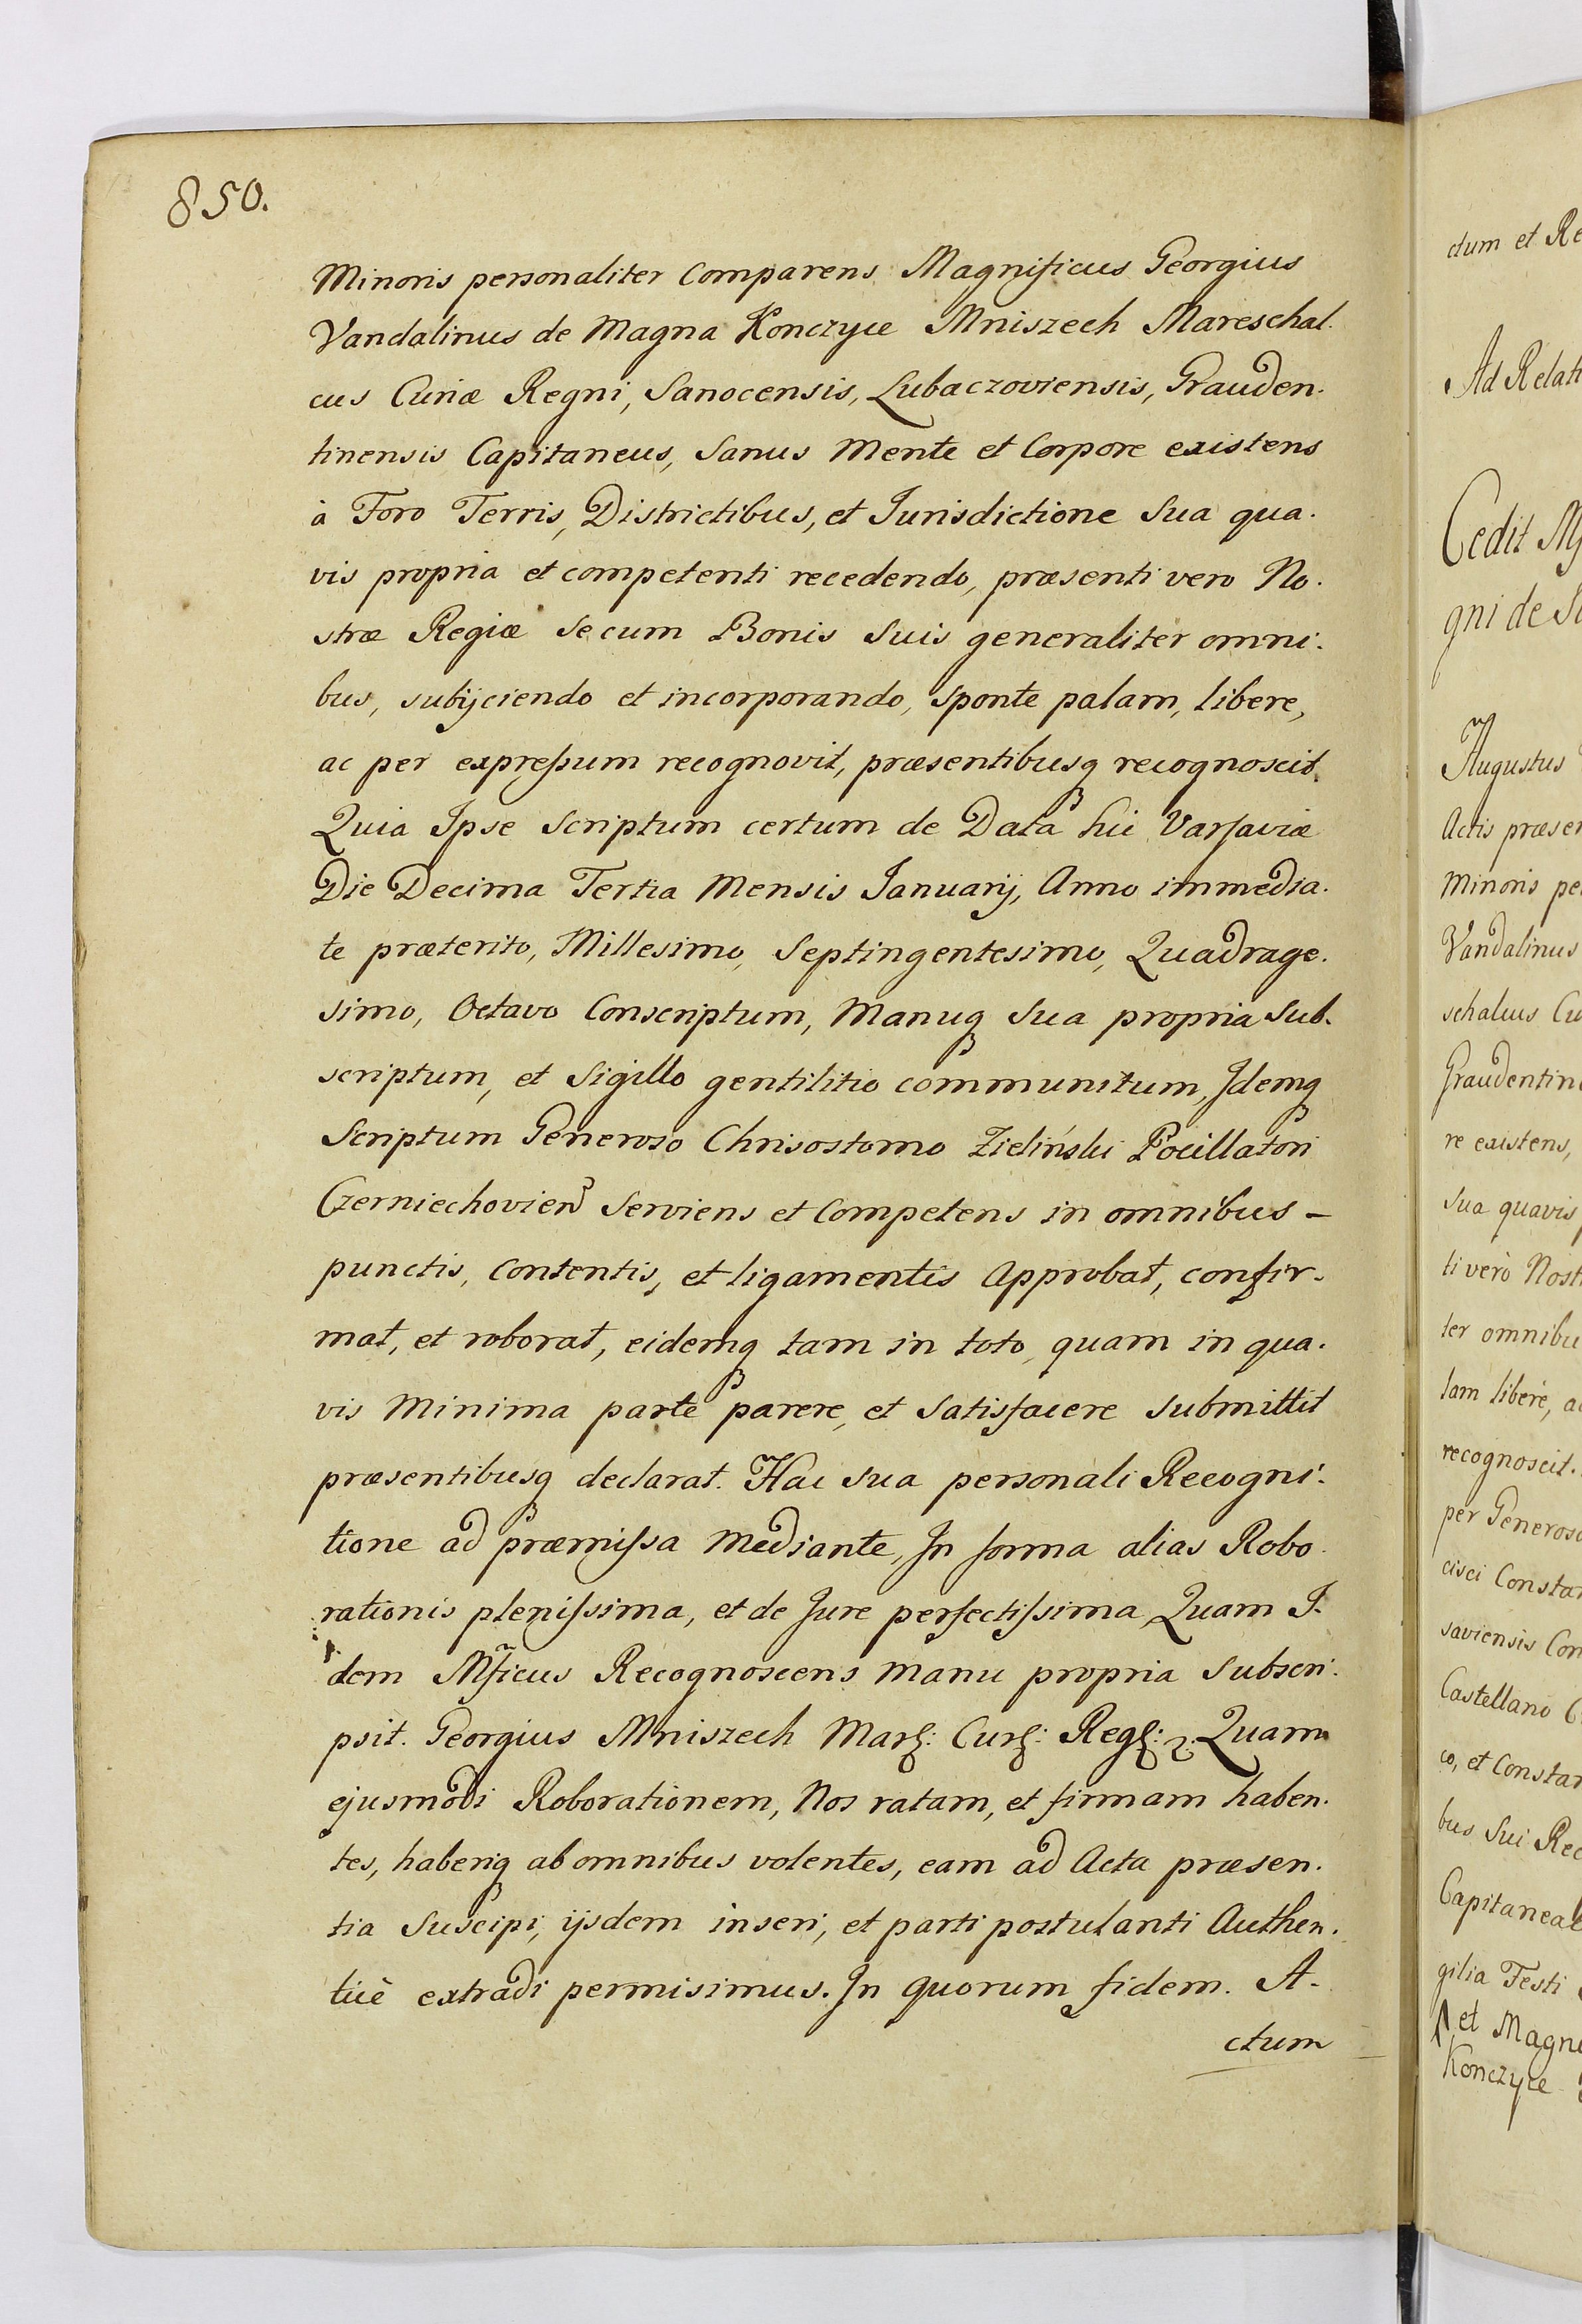 850.
Minoris personaliter Comparens Magnificus Georgius
Vandalinus de Magna Konczyce Mniszech Mareschal.
cus Curiæ Regni, Sanocensis, Lubaczoviensis, Grauden.
tinensis Capitaneus, Sanus Mente et Corpore existens
à Foro Terris, Districtibus, et Jurisdictione Sua qua.
vis propria et competenti recedendo, præsenti vero No.
stræ Regiæ se cum Bonis suis generaliter omni.
bus, subijciendo et incorporando, sponte palam, libere,
ac per expreſsum recognovit, præsentibusq recognoscit
Quia Ipse Scriptum certum de Data hic Varsaviæ
Die Decima Tertia Mensis Januarij, Anno immedia.
te præterito, Millesimo, Septingentesimo, Quadrage.
simo, Octavo Conscriptum, Manuq Sua propria Sub.
scriptum, et Sigillo gentilitio communitum, Idemq
Scriptum Generoso Chrisostomo Zieliński Pocillatori
Czerniechovien Serviens et Competens in omnibus –
punctis, contentis, et ligamentis Approbat, confir-
mat, et roborat, eidemq tam in toto, quam in qua.
vis Minima parte parere, et Satisfacere Submittit
præsentibusq declarat. Hac sua personali Recogni.
tione ad præmiſsa Mediante, In forma alias Robo.
rationis pleniſsima, et de Jure perfectiſsima, Quam I.
dem Mficus Recognoscens manu propria Subscri.
psit. Georgius Mniszech Mar: Cur: Reg: Quam
ejusmodi Roborationem, Nos ratam, et firmam haben.
tes, haberiq ab omnibus volentes, eam ad Acta præsen.
tia Suscipi, ijsdem inseri, et parti postulanti Authen.
ticè extradi permisimus. In quorum fidem. A-
ctum
ctum et Re
Ad Relati
Cedit
gni de
Augustus
Actis præsen
Minoris pe
Vandalinus
schalcus Cu
Graudentin
re existens,
Sua quavis
ti verò Nost
ter omnibu
lam liberè, a
recognoscit.
per Generos
cisci Constan
saviensis Con
Castellano C
co, et Constan
bus Sui Rec
Capitaneal
gilia Testi
et Magn
Konczyce